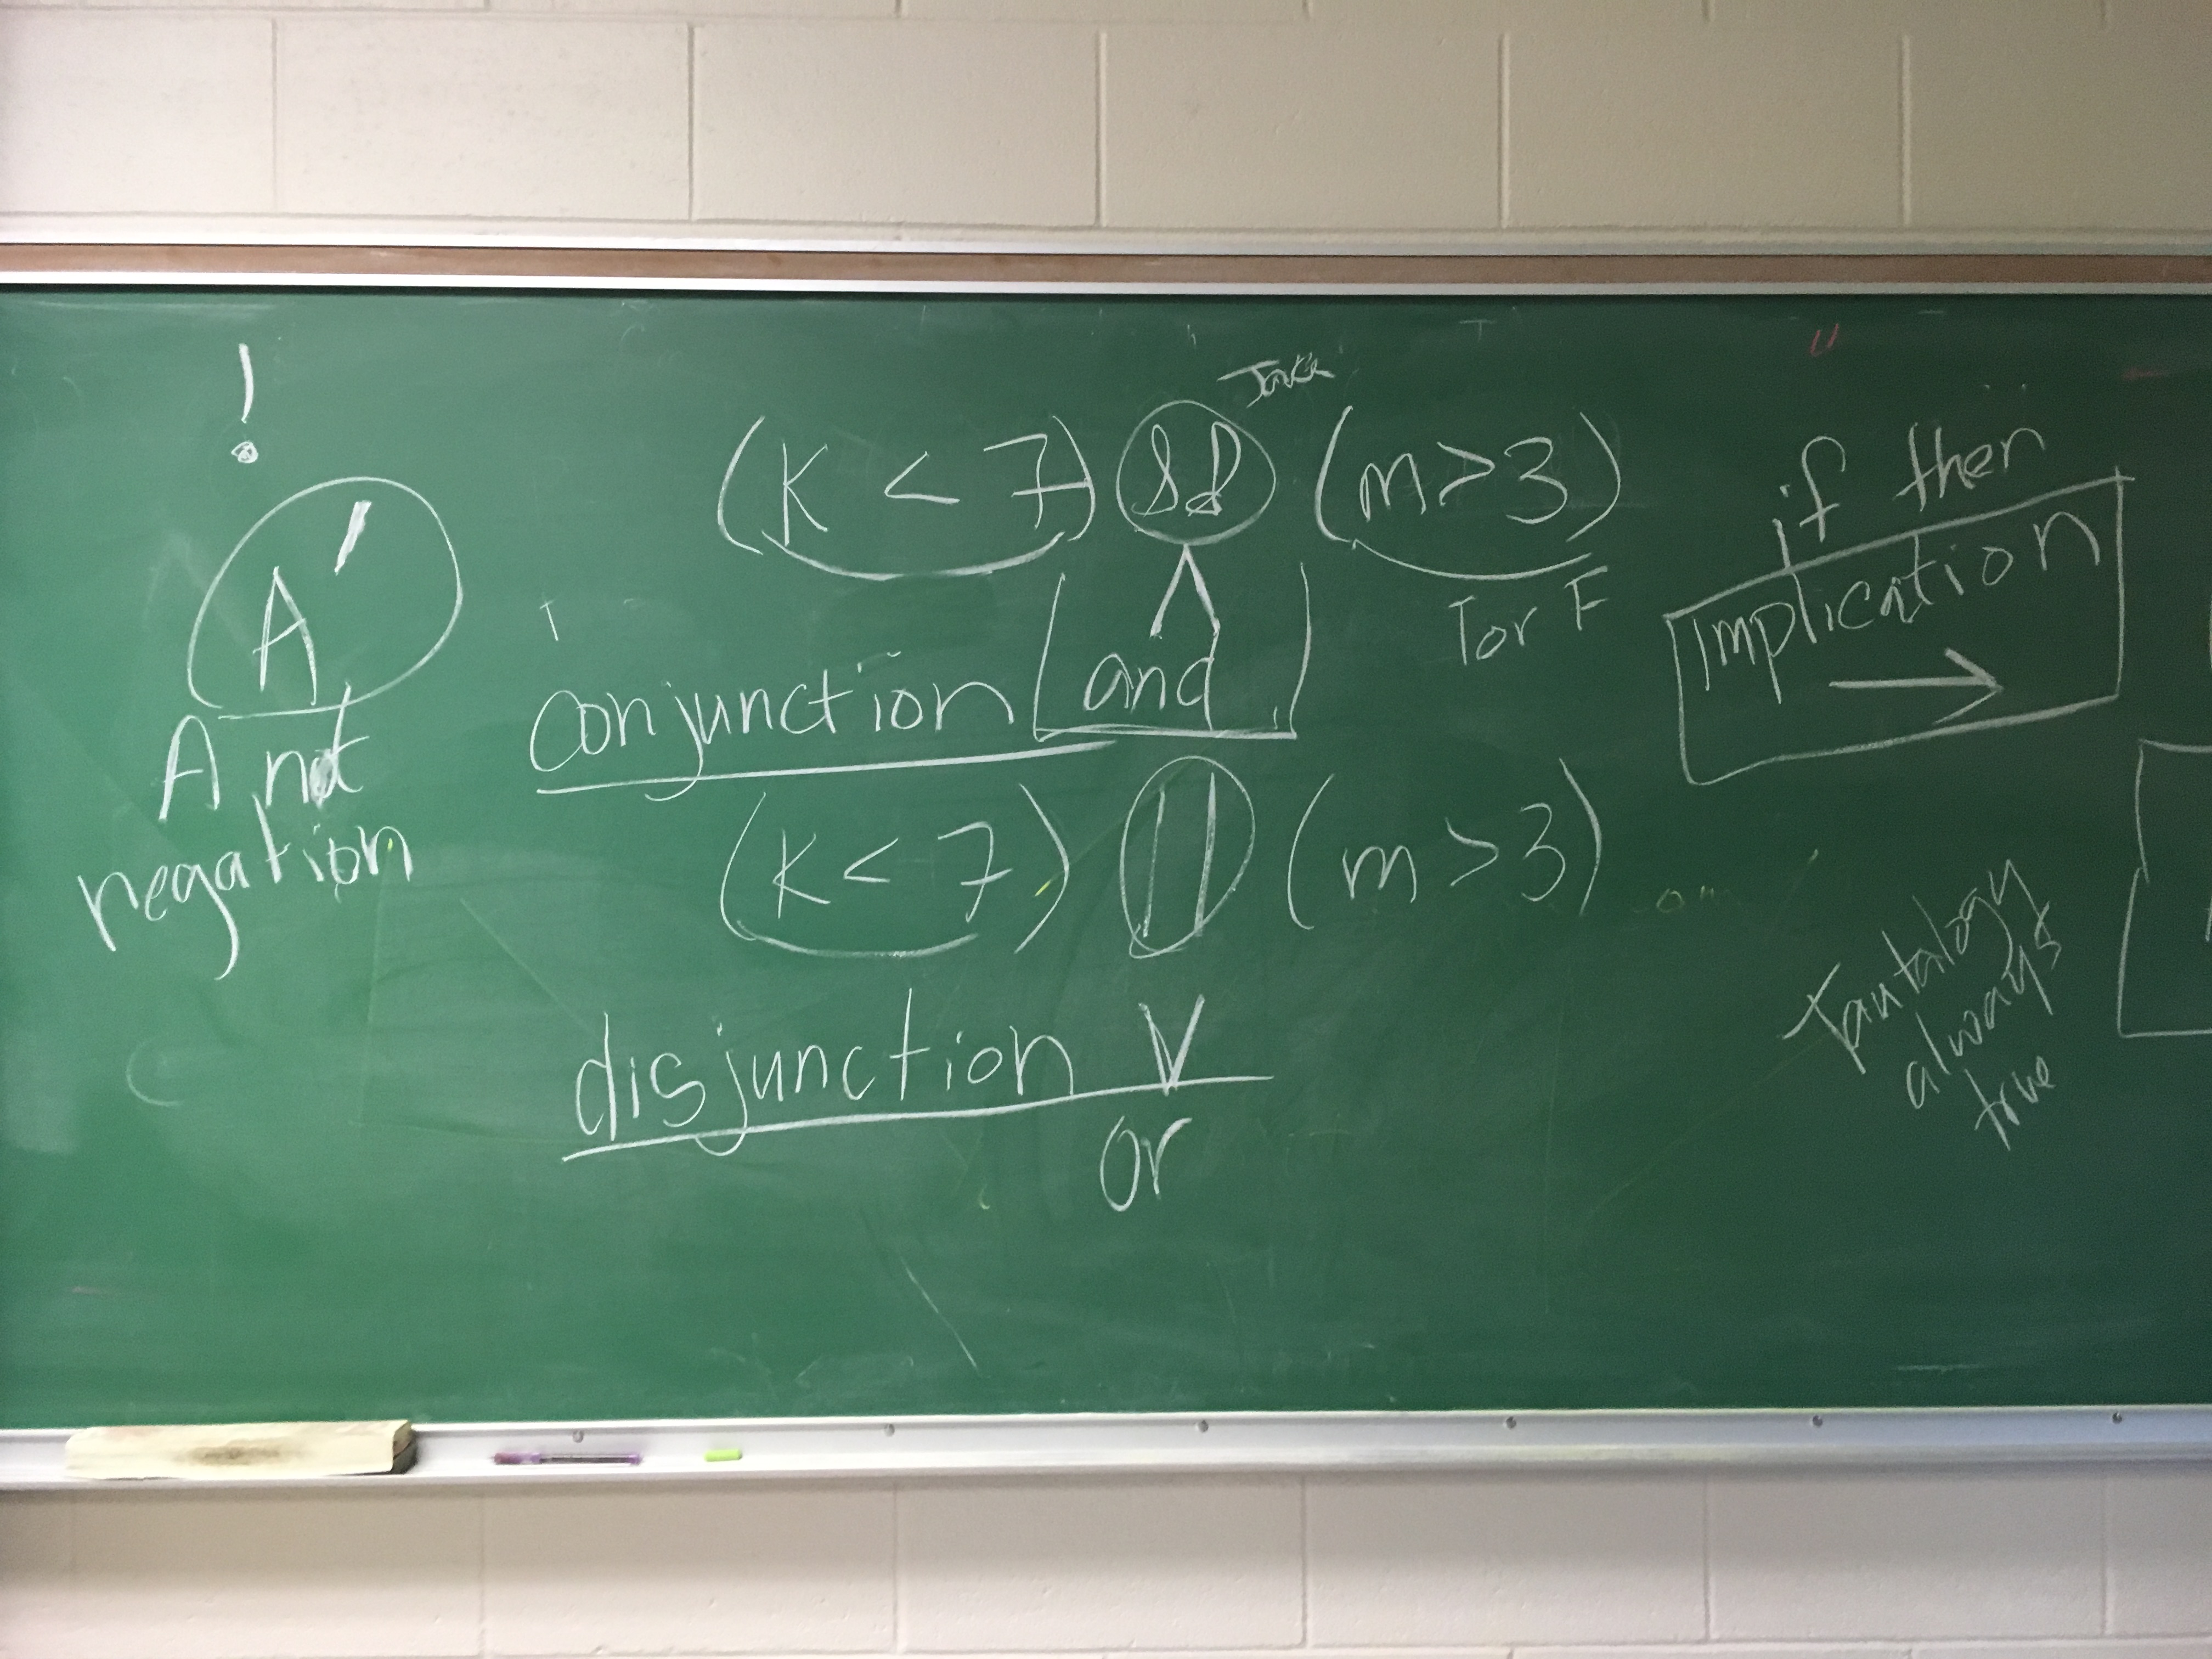 !
A'
A not
negation
Java
(K < 7) && (m > 3)
T or F
∧
conjunction and
(K < 7) || (m > 3)
disjunction V
or
if then
Implication
→
Tautalogy
always
true